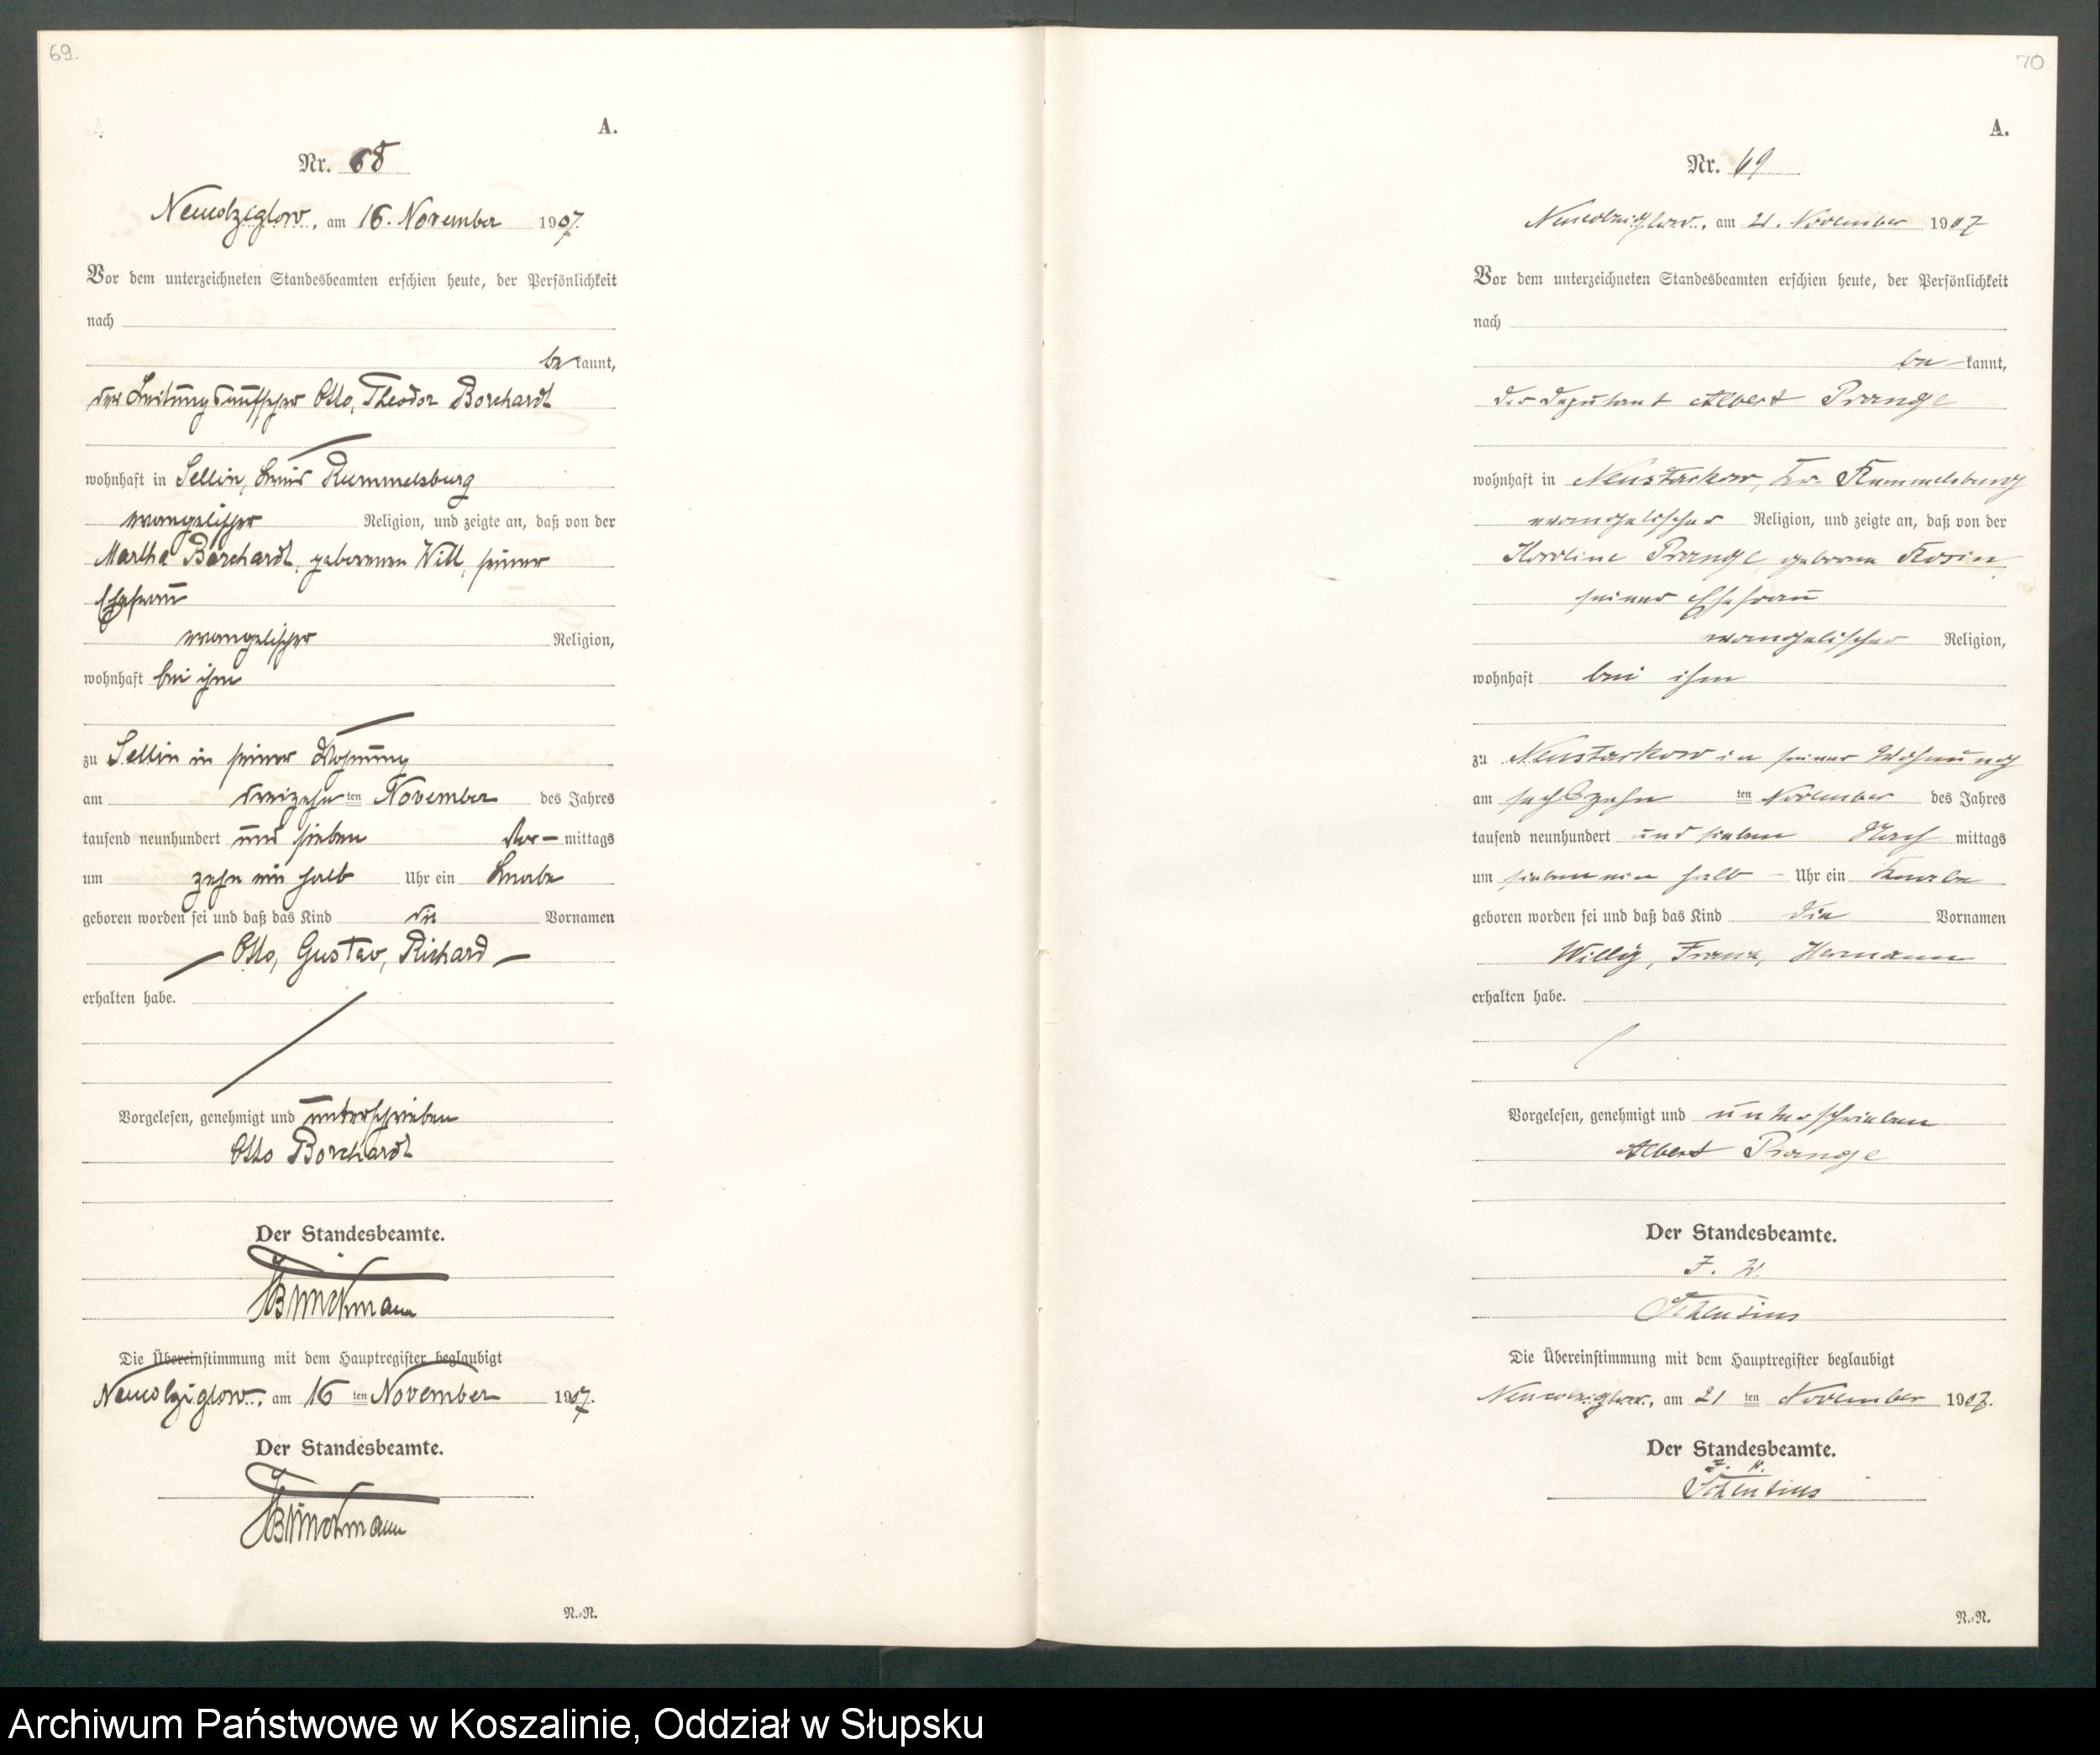 69.
A.
Nr. 68
Neukolziglow, am 16. November 1907.
Vor dem unterzeichneten Standesbeamten erschien heute, der Persönlichkeit
nach
be kannt,
der Leitungsaufseher Otto, Theodor Borchardt
wohnhaft in Sellin, Kreis Rummelsburg
evangelischer Religion, und zeigte an, daß von der
Martha Borchardt, geborenen Will, seiner
Ehefrau
evangelischer Religion,
wohnhaft bei ihm
zu Sellin in seiner Wohnung
am dreizehn ten November des Jahres
tausend neunhundert und sieben Vor- mittags
um zehn ein halb Uhr ein Knabe
geboren worden sei und daß das Kind die Vornamen
Otto, Gustav, Richard
erhalten habe.
Vorgelesen, genehmigt und unterschrieben
Otto Borchardt
Der Standesbeamte.
Brinckmann
Die Übereinstimmung mit dem Hauptregister beglaubigt
Neukolziglow, am 16 ten November 1907.
Der Standesbeamte.
Brinckmann
N.-N.
70
A.
Nr. 69
Neukolziglow, am 21. November 1907
Vor dem unterzeichneten Standesbeamten erschien heute, der Persönlichkeit
nach
be kannt,
der Deputant Albert Prange
wohnhaft in Neustarkow, Kr. Rummelsburg
evangelischer Religion, und zeigte an, daß von der
Karoline Prange geborene Kosin
seiner Ehefrau
evangelischer Religion,
wohnhaft bei ihm
zu Neustarkow in seiner Wohnung
am sechszehn ten November des Jahres
tausend neunhundert und sieben Nach mittags
um sieben ein halb Uhr ein Knabe
geboren worden sei und daß das Kind die Vornamen
Willy, Franz, Hermann
erhalten habe.
Vorgelesen, genehmigt und unterschrieben
Albert Prange
Der Standesbeamte.
J. V.
Die Übereinstimmung mit dem Hauptregister beglaubigt
Neukolziglow, am 21 ten November 1907.
Der Standesbeamte.
J. V.
N.-N.
Archiwum Państwowe w Koszalinie, Oddział w Słupsku